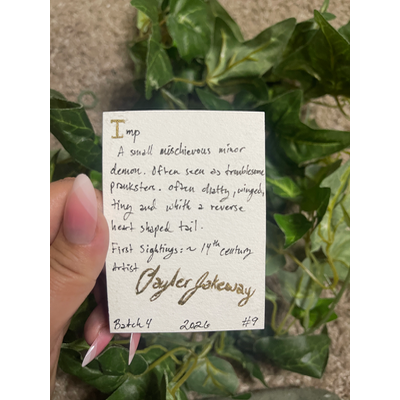 Imp
A small mischievous minor
demon. Often seen as troublesome
pranksters. Often chatty, winged,
tiny and whith a reverse
heart shaped tail.
First Sightings: ~ 14th century
Artist
Tayler Jakeway
Batch 4 2026 #9